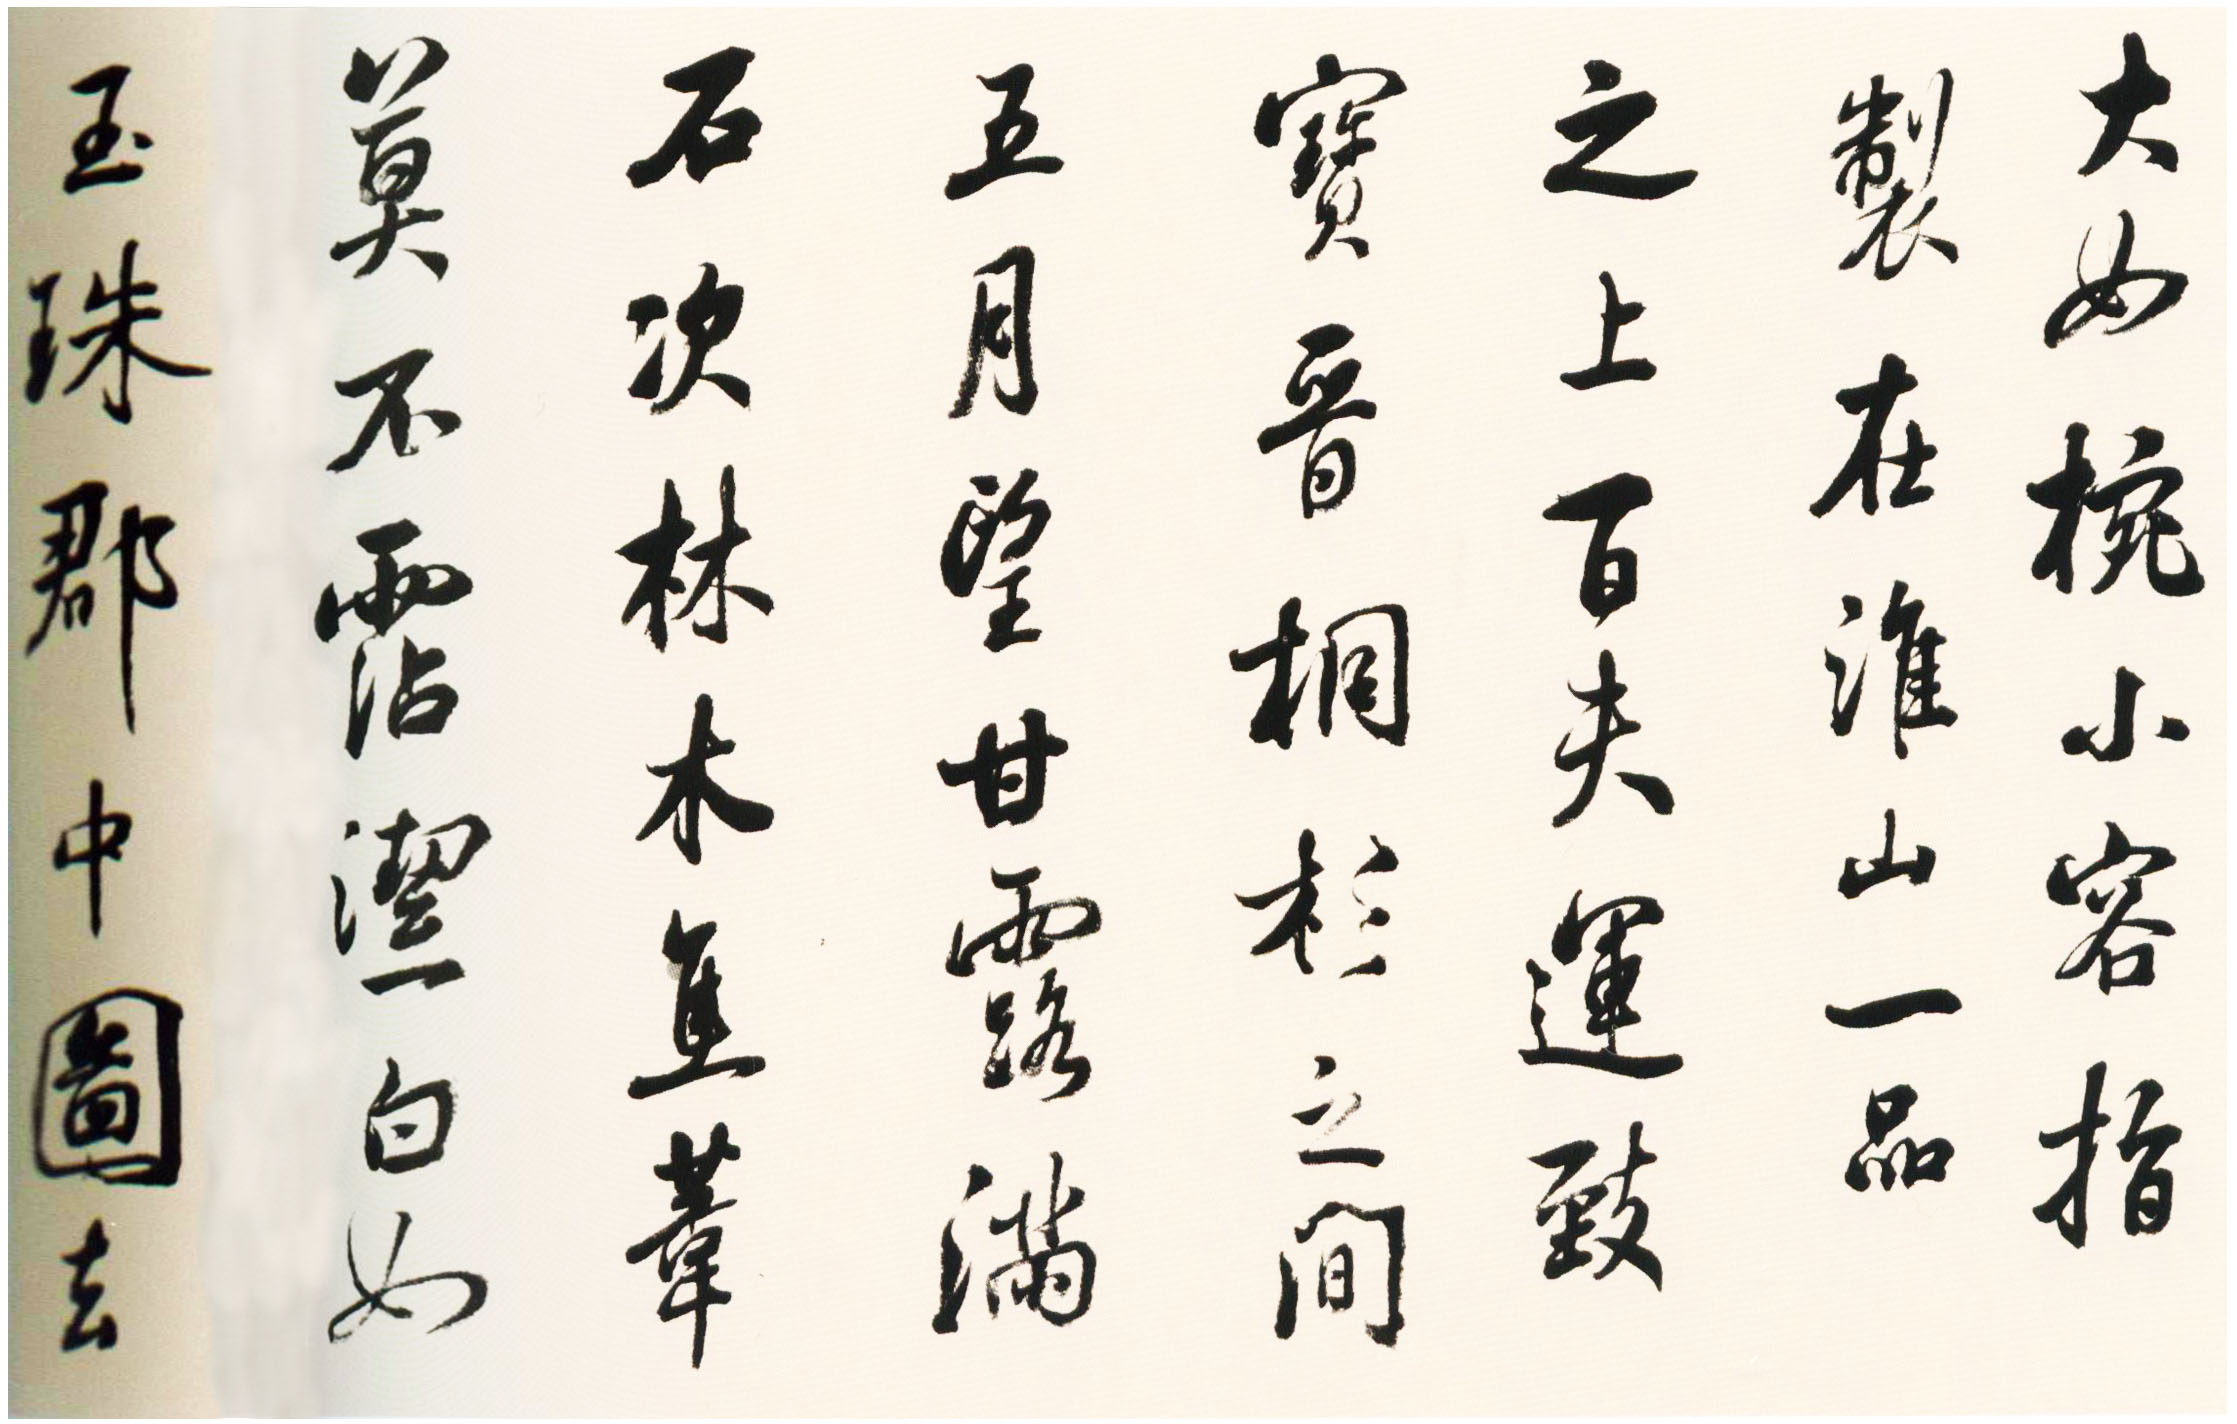 大如椀小容指
製在淮山一品
之上百夫運致
寶晉桐杉之間
五月望甘露滿
石次林木焦葦
莫不霑潔白如
玉珠郡中圖去